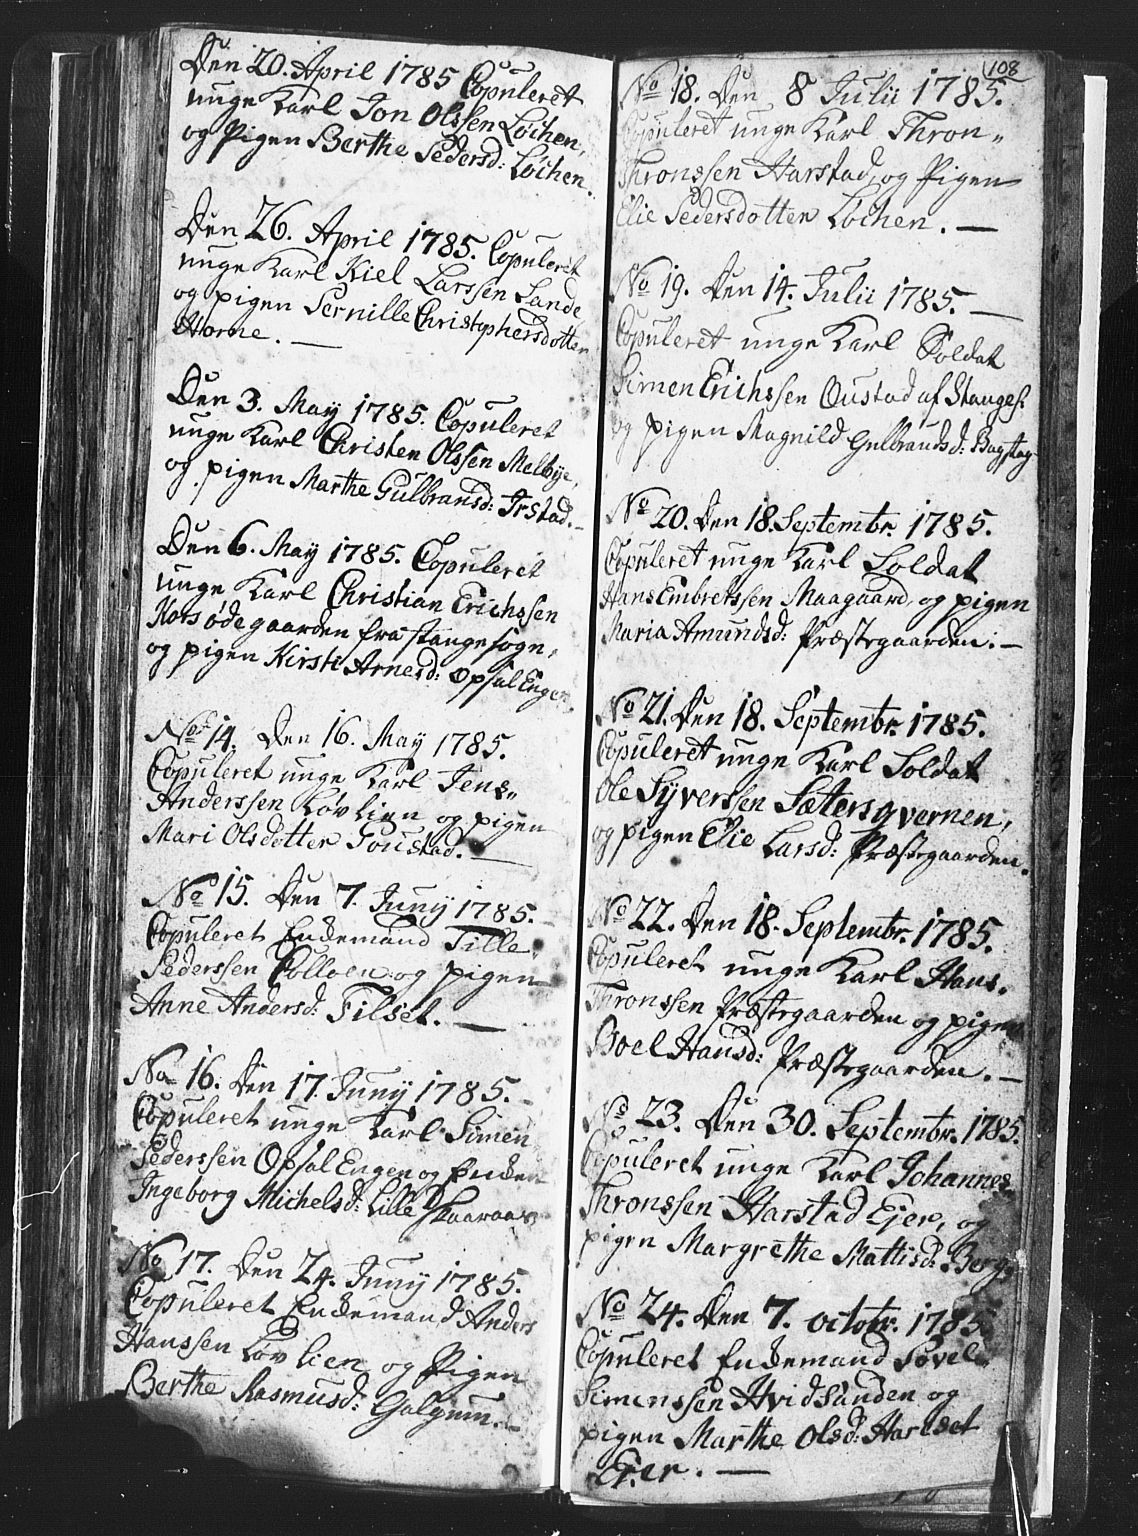 Den 20. April 1785 Copuleret
unge Karl Jon Olssen Løchen,
og Pigen Berthe Pedersd: Løchen.
Den 26. April 1785. Copuleret
unge Karl Kiel Larssen Sande
og pigen Pernille Christophersdotter
Horne. —
Den 3. May 1785. Copuleret
unge Karl Christen Olssen Melbye,
og pigen Marthe Gulbransd: Irstad. -
Den 6. May 1785. Copuleret
unge Karl Christian Erichssen
Korsødegaarden fra Stange sogn,
og pigen Kirsti Arnesd: Opsal Engen.
No 14. Den 16. May 1785.
Copuleret unge Karl Jens
Anderssen Løvlien og pigen
Mari Olsdotter Poustad. —
No 15. Den 7. Juny 1785.
Copuleret Enckemand Tille
Pederssen Colloen og pigen
Anne Andersd: Filset. —
No 16. Den 17. Juny 1785. -
Copuleret unge Karl Simen
Pederssen Opsal Engen og Encken
Ingeborg Michelsd: Lille Skaaraas
No 17. Den 24. Juny 1785.
Copuleret Enckemand Anders
Hanssen Løvlien og Pigen
Berthe Rasmusd: Galgum. -
108
No 18. Den 8 Julii 1785.
Copuleret unge Karl Thron
Thronssen Harstad, og Pigen
Elie Pedersdotter Løchen. —
No 19. Den 14. Julii 1785. —
Copuleret unge Karl Soldat
Simen Erichssen Oustad af Stanges:
og pigen Magnild Gulbrandsd: Bagstag
No 20. Den 18. Septembr. 1785.
Copuleret unge Karl Soldat
Hans Embretssen Maagaard, og pigen
Maria Amundsd: Præstegaarden. —
No 21. Den 18. Septembr. 1785.
Copuleret unge Karl Soldat
Ole Syverssen Sætersqvernen,
og pigen Elie Larsd: Præstegaarden.
No 22. Den 18. Septembr. 1785.
Copuleret unge Karl Hans
Thronssen Præstegaarden og pigen
Boel Hansd: Præstegaarden. —
No 23. Den 30. Septembr. 1785.
Copuleret unge Karl Johannes
Thronssen Harstad Ejer, og
pigen Margrethe Mattisd: Berg.
No 24. Den 7. octobr. 1785.
Copuleret Enckemand Povel
Simenssen Hvidsanden og
pigen Marthe Olsd: Harlset
Ejer. —